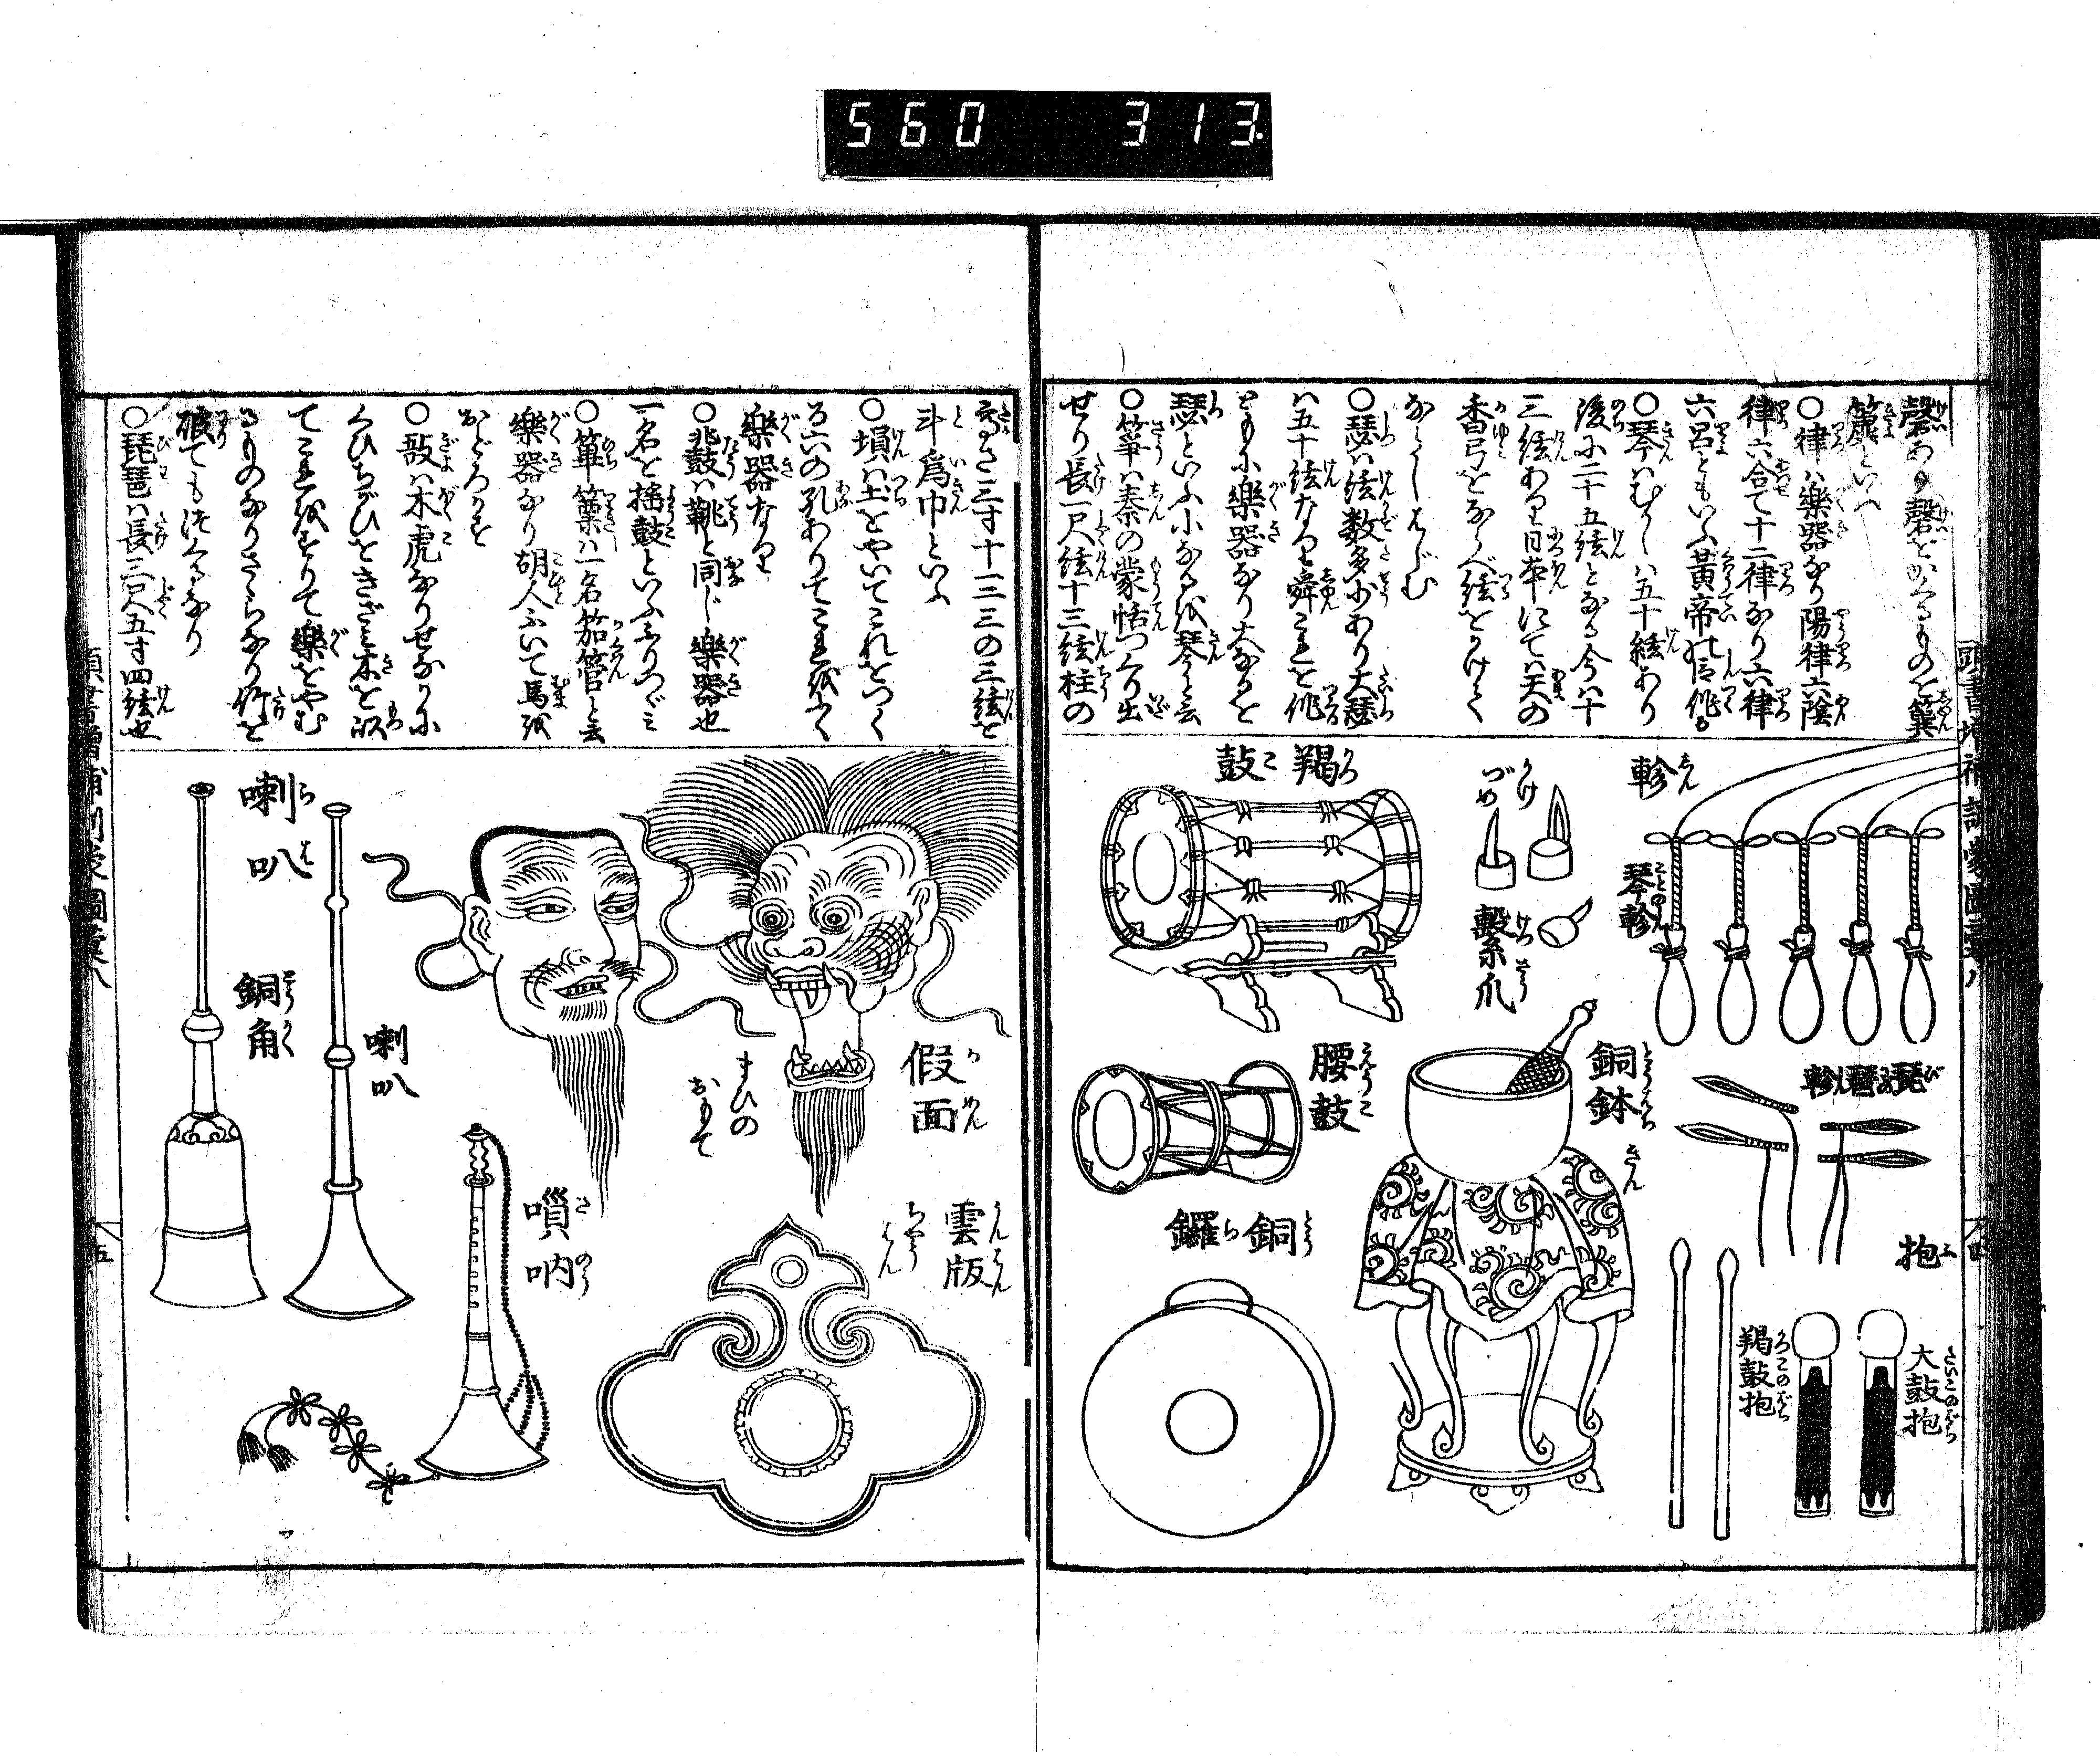 560 313
磬あり磬をかくるものを簨
簴といへ
○律ハ樂器なり陽律六陰
律六合て十二律なり六律
六呂ともいふ黄帝の臣作る
○琴ハむかしハ五十絃あり
後に二十五絃となる今ハ十
三絃あり日本にてハ天の
香弓をならべ絃をかけて
ならしはじむ
○瑟ハ絃数多少あり大瑟
ハ五十絃なり舜これを作
ともに樂器なり大なるを
瑟といふ小なるを琴と云
○箏ハ秦の蒙恬つくり出
せり長一尺絃十三絃柱の
軫
琴軫
かけづめ
繋爪
羯鼓
琵琶軫
銅鉢
きん
腰鼓
銅鑼
枹
大鼓枹
羯鼓枹
高さ三寸十三三の三絃を
斗為巾といふ
○塤ハ土をやいてこれをつく
る六の孔ありてこれをふく
樂器なり
○兆鼓ハ鞉と同じ樂器也
一名を揺鼓といふふりつゞみ
○篳篥ハ一名笳管と云
樂器なり胡人ふいて馬を
おどろかす
○敔ハ木虎なりせなかに
くひちがひをきざミ木を以
てこれをすりて樂をやむ
るものなりさゝらなり竹を
破てもつくるなり
○琵琶ハ長三尺五寸四絃也
假面
まひのおもて
雲版
ちやうはん
喇叭
喇叭
銅角
嗩吶
頭書増補訓蒙圖彙八
五